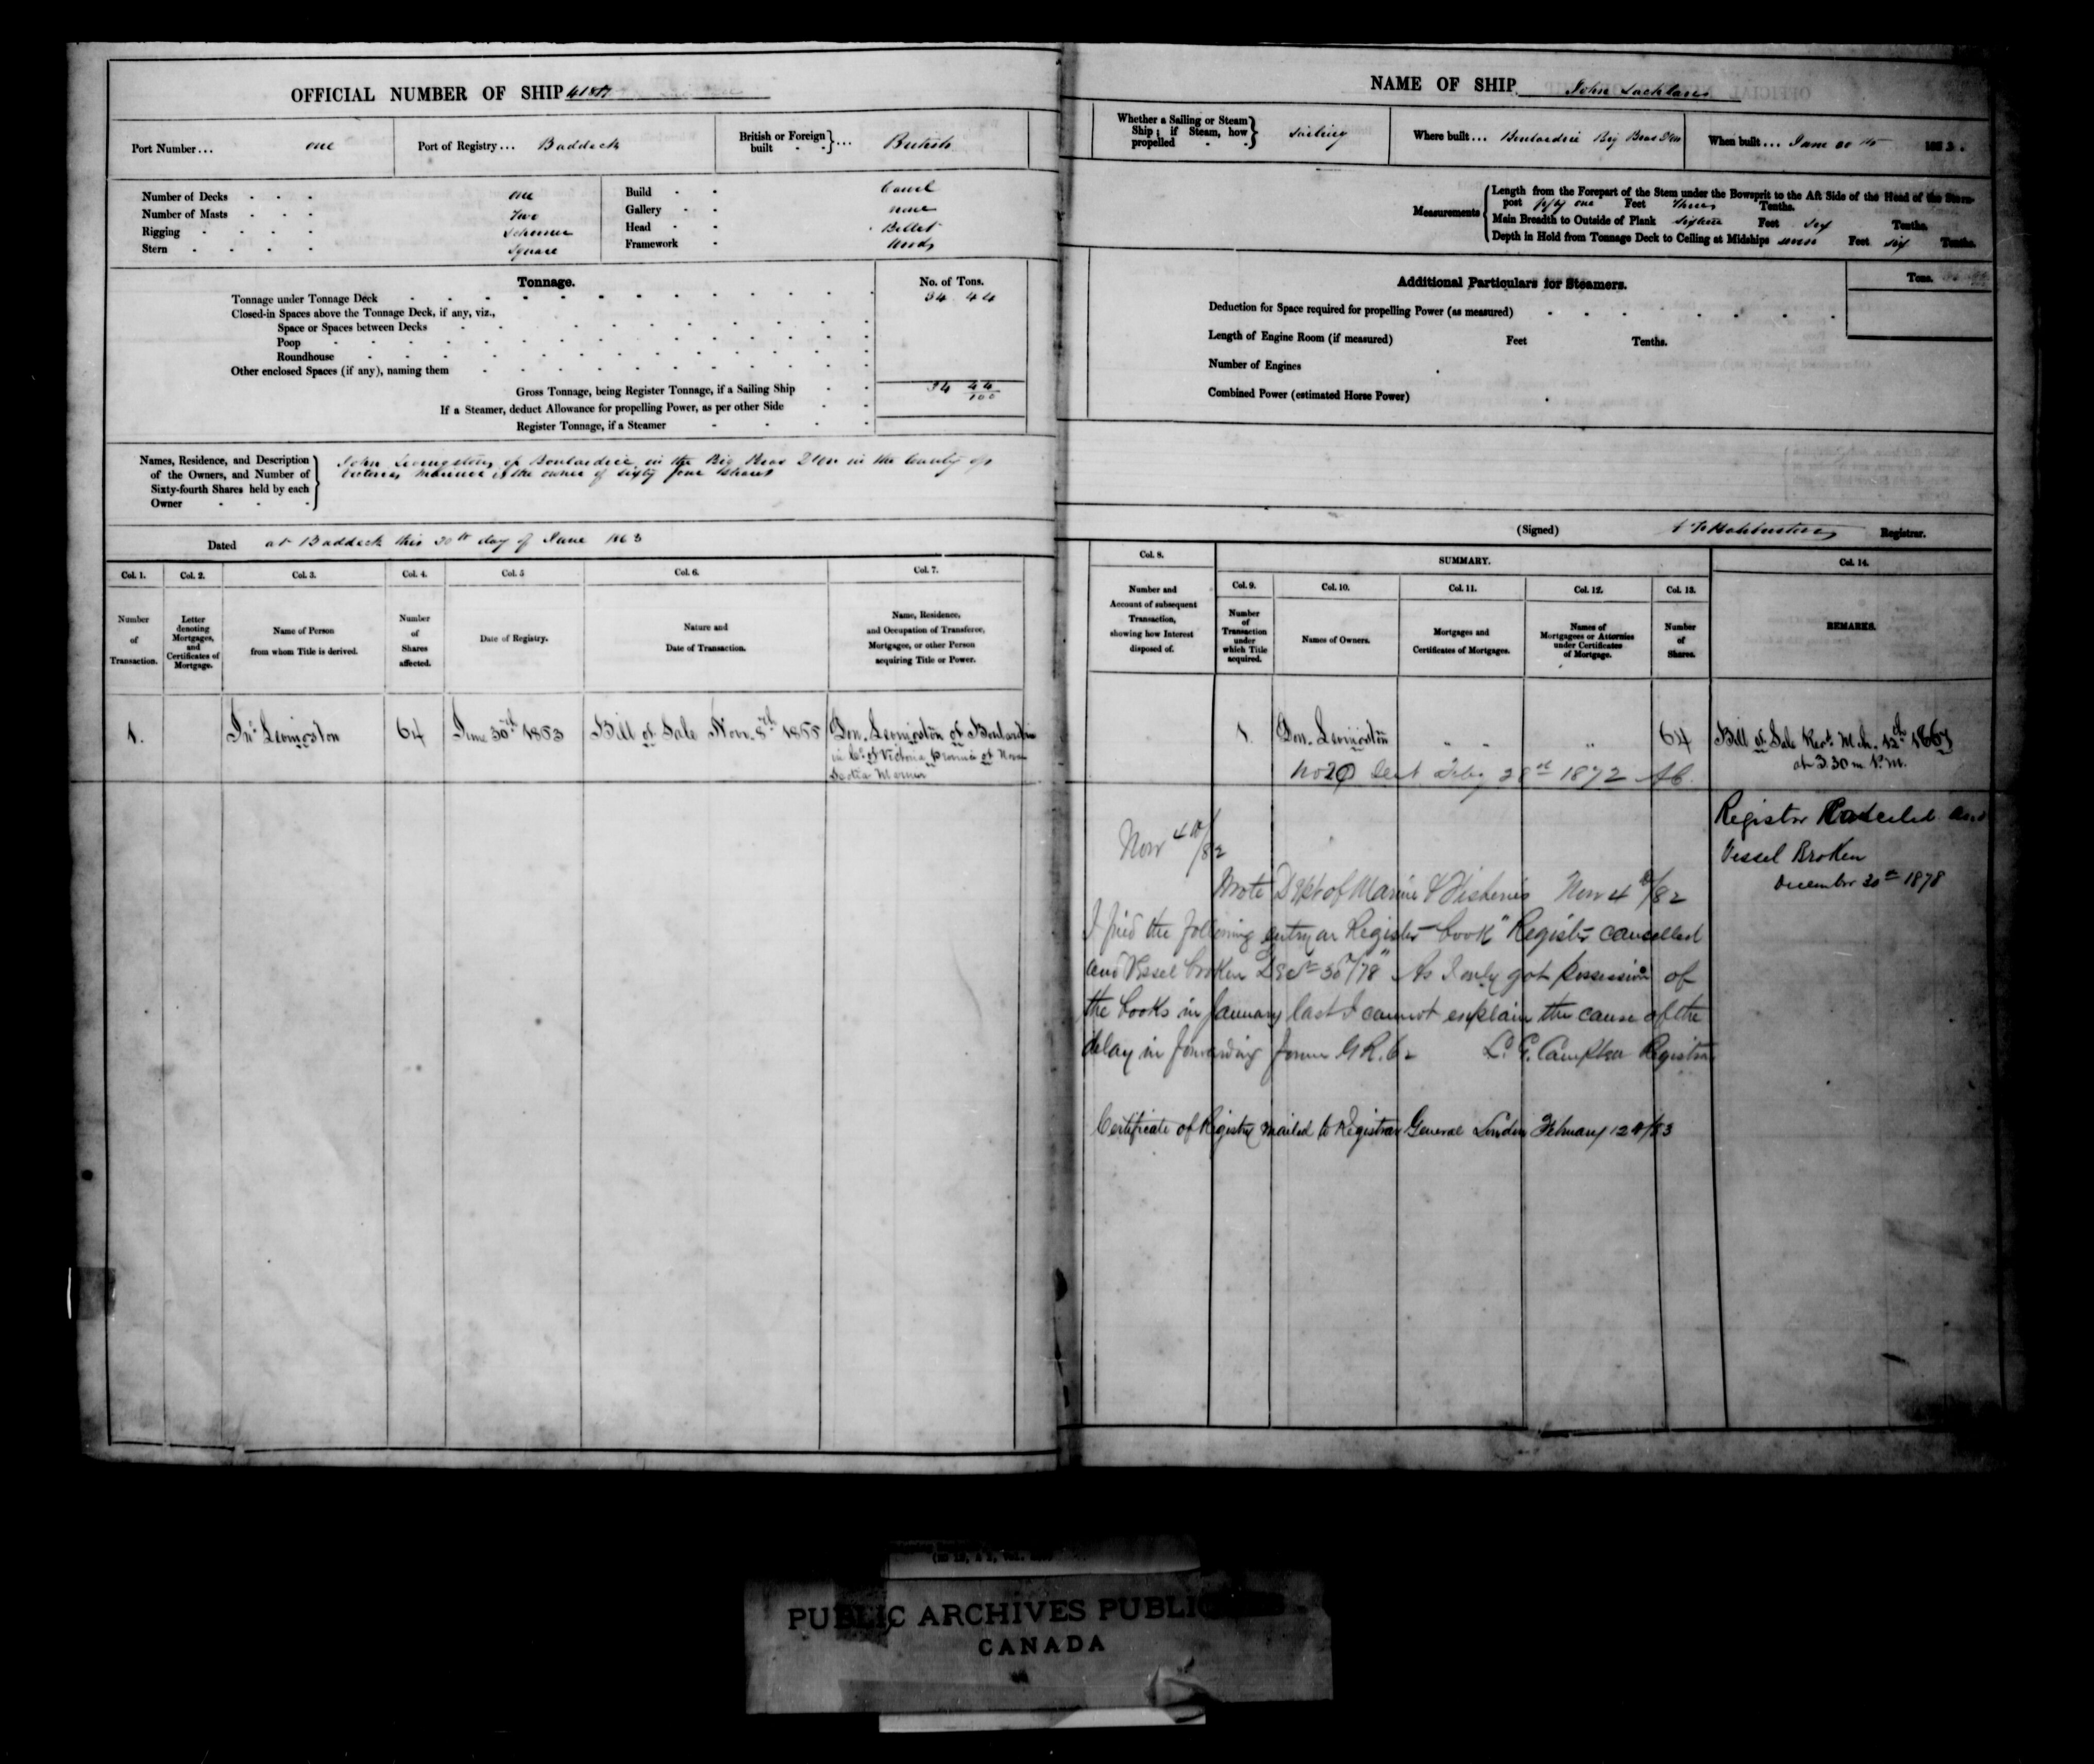 OFFICIAL NUMBER OF SHIP
Port Number... one
Port of Registry... Baddeck
British or Foreign built - - }... British
Number of Decks - - - one
Number of Masts - - - Two
Rigging - - - - Schooner
Stern - - - - Square
Build - - Carvel
Gallery - - none
Head - - Billet
Framework - Wood
Tonnage.
No. of Tons.
Tonnage under Tonnage Deck 34 44
Closed-in Spaces above the Tonnage Deck, if any, viz.,
Space or Spaces between Decks
Poop
Roundhouse
Other enclosed Spaces (if any), naming them
Gross Tonnage, being Register Tonnage, if a Sailing Ship 34 44/100
If a Steamer, deduct Allowance for propelling Power, as per other Side
Register Tonnage, if a Steamer
Names, Residence, and Description of the Owners, and Number of Sixty-fourth Shares held by each Owner
John Livingston, of Boulardrie in the Big Bras D'or in the County of
Victoria, Mariner is the owner of sixty four Shares
Dated at Baddeck this 30th day of June 1863
Col. 1. Col. 2. Col. 3. Col. 4. Col. 5 Col. 6. Col. 7.
Number of Transaction.
Letter denoting Mortgages, and Certificates of Mortgage.
Name of Person from whom Title is derived.
Number of Shares affected.
Date of Registry.
Nature and Date of Transaction.
Name, Residence, and Occupation of Transferee, Mortgagee, or other Person acquiring Title or Power.
1. Jno Livingston 64 June 30th 1863 Bill of Sale Novr. 8th 1865 Don. Livingston of Boulardrie
in Co. of Victoria Province of Nova
Scotia Mariner
NAME OF SHIP John
Whether a Sailing or Steam Ship; if Steam, how propelled - - } Sailing
Where built... Boulardrie Big Bras D'or
When built... June 20th 1863.
Measurements
Length from the Forepart of the Stem under the Bowsprit to the Aft Side of the Head of the Stern-
post fifty one Feet three Tenths.
Main Breadth to Outside of Plank sixteen Feet six Tenths.
Depth in Hold from Tonnage Deck to Ceiling at Midships seven Feet six Tenths.
Additional Particulars for Steamers.
Tons.
Deduction for Space required for propelling Power (as measured)
Length of Engine Room (if measured) Feet Tenths.
Number of Engines
Combined Power (estimated Horse Power)
(Signed) Registrar.
Col. 8. SUMMARY. Col. 14.
Col. 9. Col. 10. Col. 11. Col. 12. Col. 13.
Number and Account of subsequent Transaction, showing how Interest disposed of.
Number of Transaction under which Title acquired.
Names of Owners.
Mortgages and Certificates of Mortgages.
Names of Mortgagees or Attornies under Certificates of Mortgage.
Number of Shares.
REMARKS.
1. Don. Livingston " " " 64 Bill of Sale Recd. Mch. 12th
at 3.30 m. P.M.
No 20 Sent Feby 28th 1872
Register Cancelled and
Vessel Broken
December 30th 1878
Nov 4th/82
Wrote Dept of Marine & Fisheries Nov 4th/82
I find the following entry on Register book "Register cancelled
and Vessel broken Decr 30th/78" As I only got possession of
the books in January last I cannot explain the cause of the
delay in forwarding form G R.
L. G. Campbell Registrar
Certificate of Registry mailed to Registrar General London February 12th/83
PUBLIC ARCHIVES PUBLIQUES
CANADA